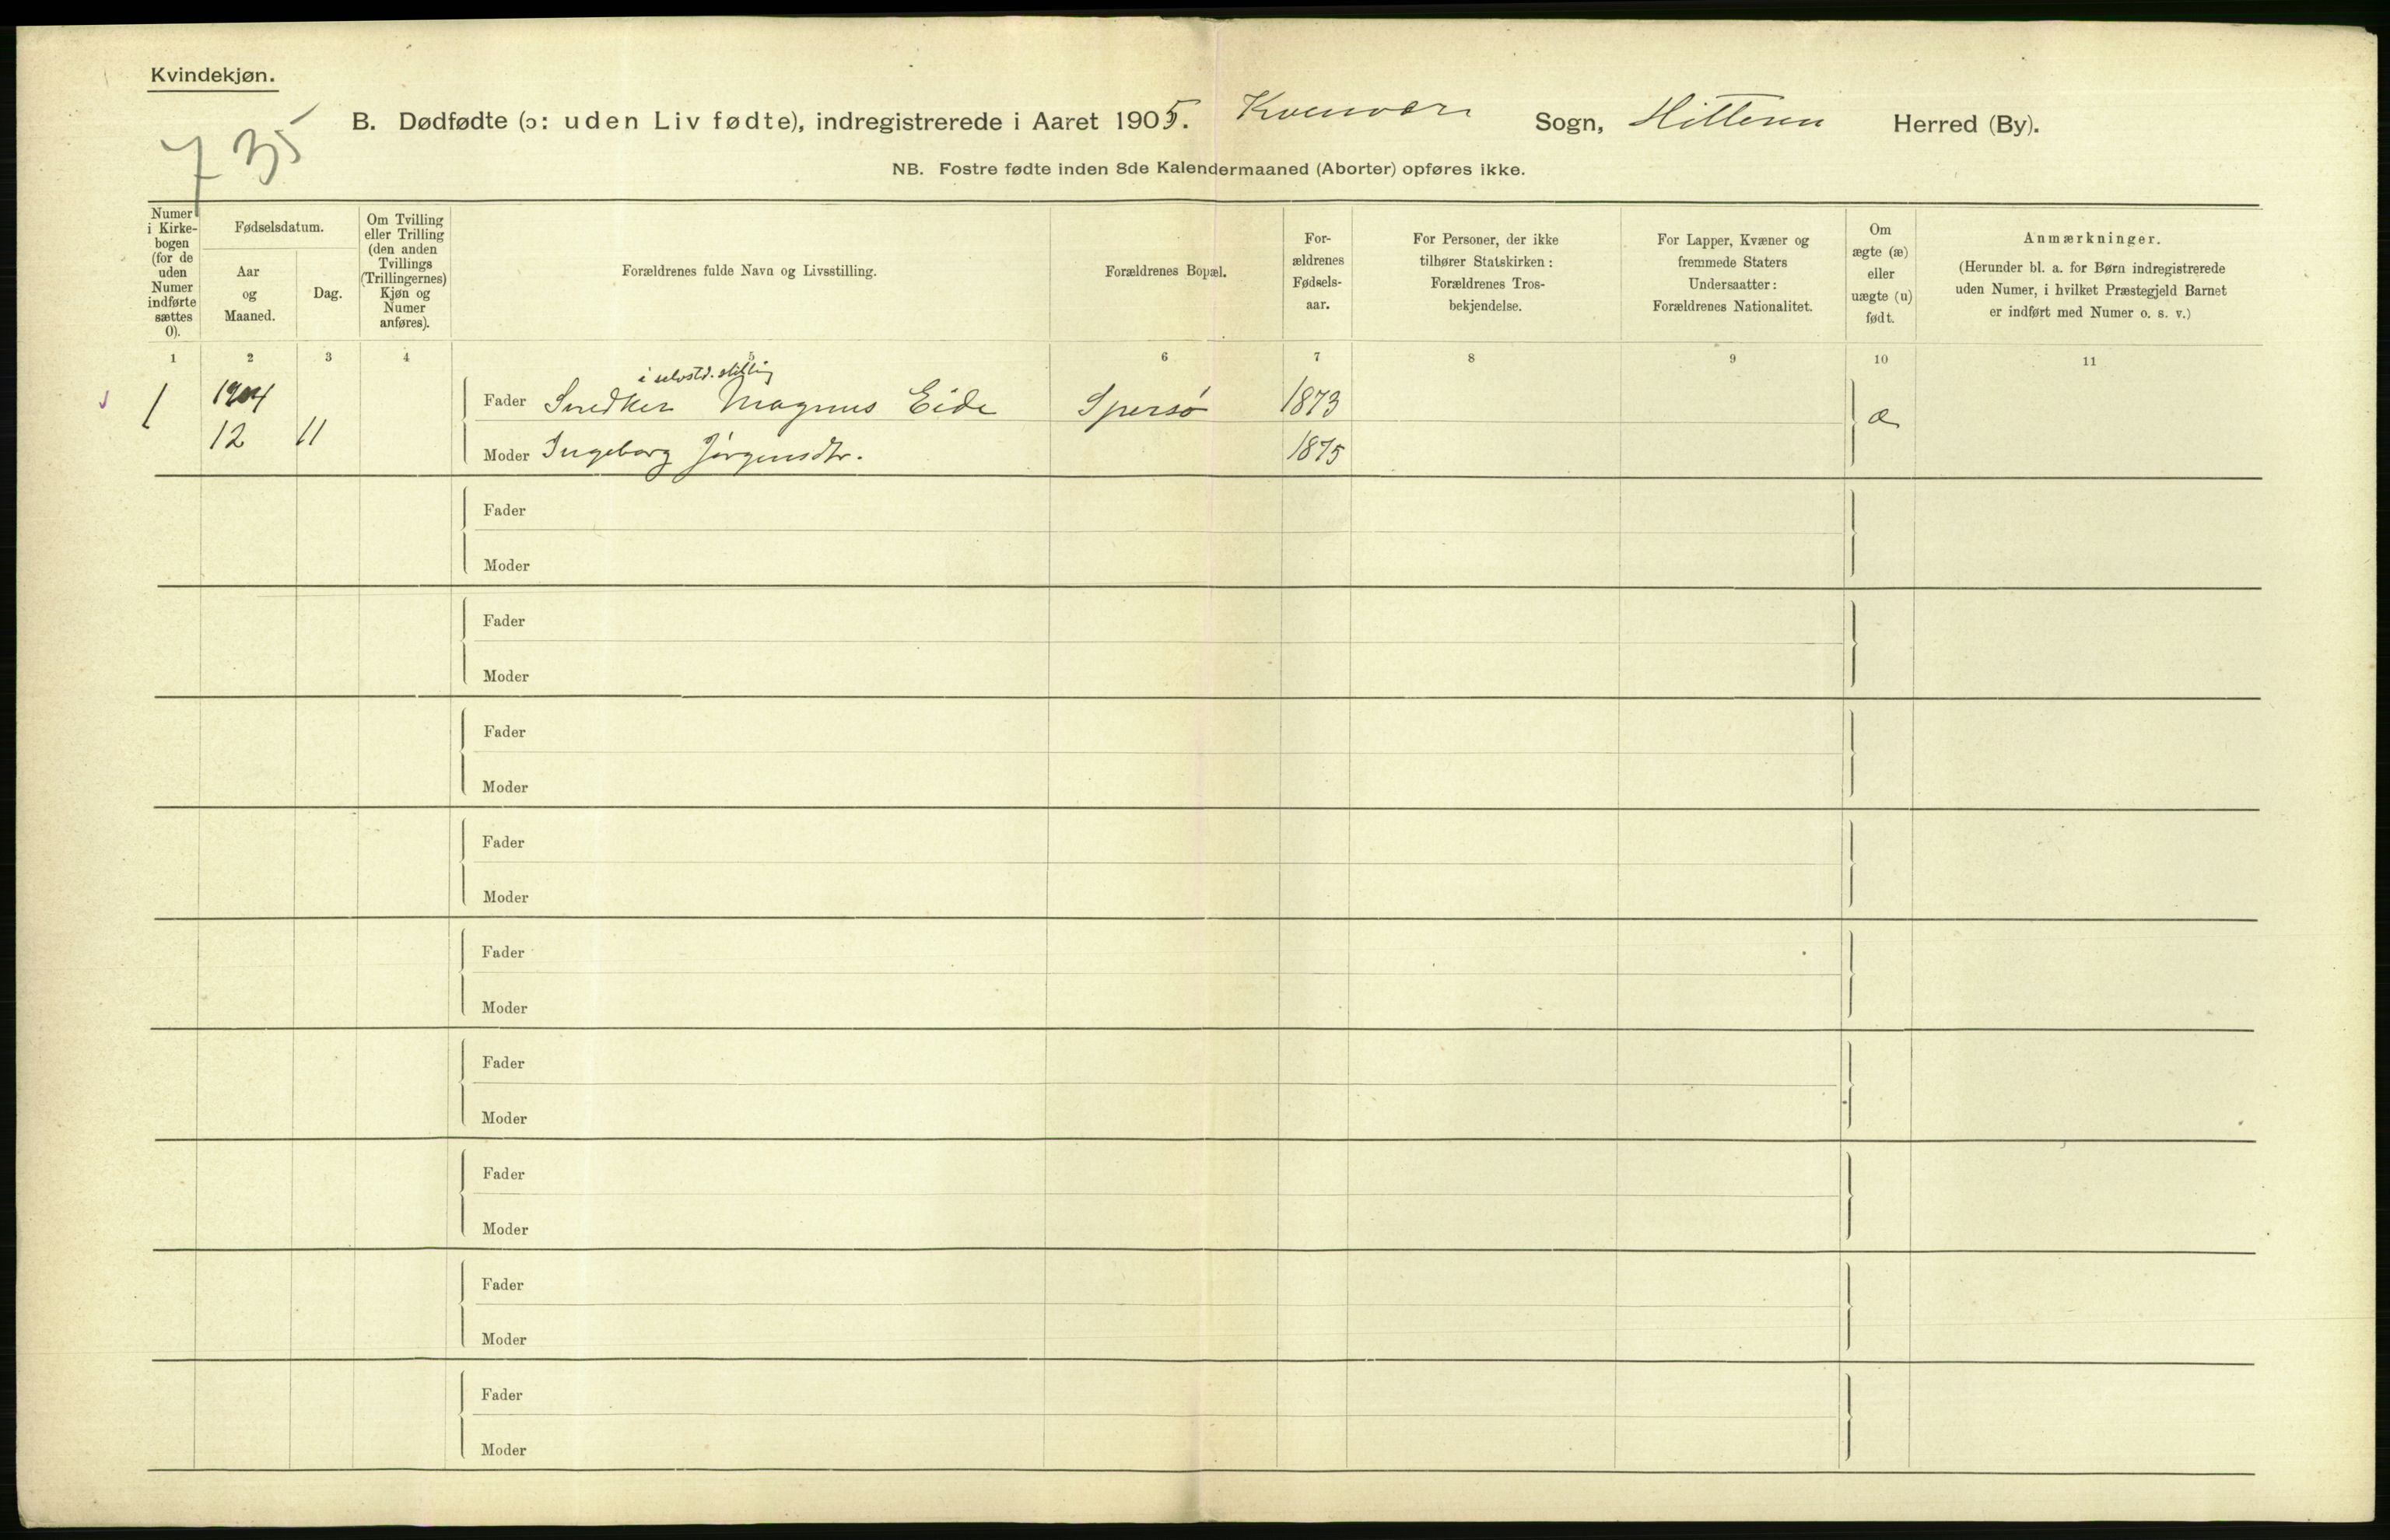 Kvindekjøn.
735
B. Dødfødte (ɔ: uden Liv fødte), indregistrerede i Aaret 1905. Kvenvær Sogn, Hitteren Herred (By).
NB. Fostre fødte inden 8de Kalendermaaned (Aborter) opføres ikke.
Numer
i Kirke-
bogen
(for de
uden
Numer
indførte
sættes
0).
Fødselsdatum.
Aar
og
Maaned.
Dag.
Om Tvilling
eller Trilling
(den anden
Tvillings
(Trillingernes)
Kjøn og
Numer
anføres).
Forældrenes fulde Navn og Livsstilling.
Forældrenes Bopæl.
For-
ældrenes
Fødsels-
aar.
For Personer, der ikke
tilhører Statskirken:
Forældrenes Tros-
bekjendelse.
For Lapper, Kvæner og
fremmede Staters
Undersaatter:
Forældrenes Nationalitet.
Om
ægte (æ)
eller
uægte (u)
født.
Anmærkninger.
(Herunder bl. a. for Børn indregistrerede
uden Numer, i hvilket Præstegjeld Barnet
er indført med Numer o. s. v.)
1 2 3 4 5 6 7 8 9 10 11
i selvstd. stilling
1 1904 Fader Snedker Magnus Eide Spersø 1873 æ
12 11 Moder Ingeborg Jørgensdtr. 1875
Fader
Moder
Fader
Moder
Fader
Moder
Fader
Moder
Fader
Moder
Fader
Moder
Fader
Moder
Fader
Moder
Fader
Moder